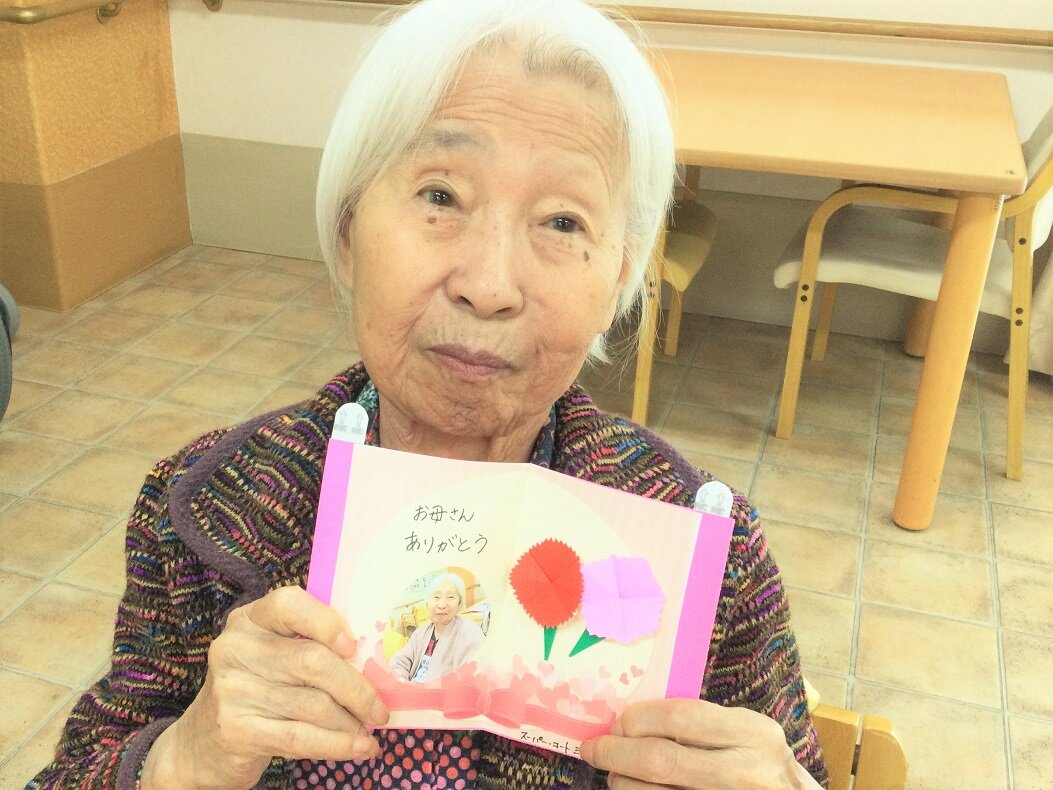 お母さん
ありがとう
スーパー・コート